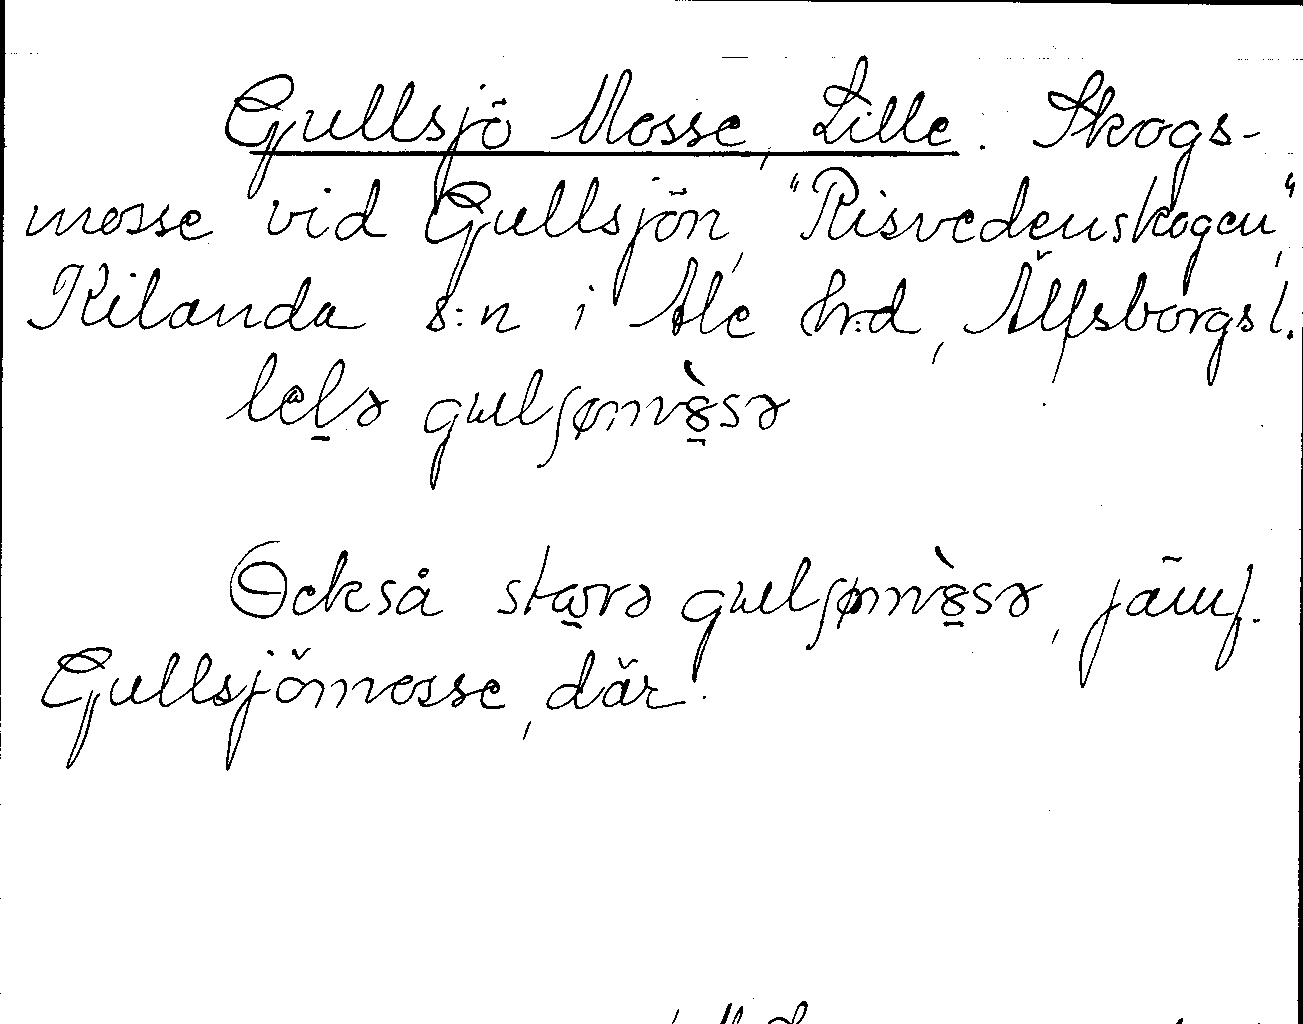 Gullsjö Mosse, Lille. Skogs-
mosse vid Gullsjön, "Risvedenskogen",
Kilanda s:n i Ale hrd, Älfsborgs l.
lelə gulʃømòsə
Också stɑrə gulʃømòsə, jämf.
Gullsjömosse, där.